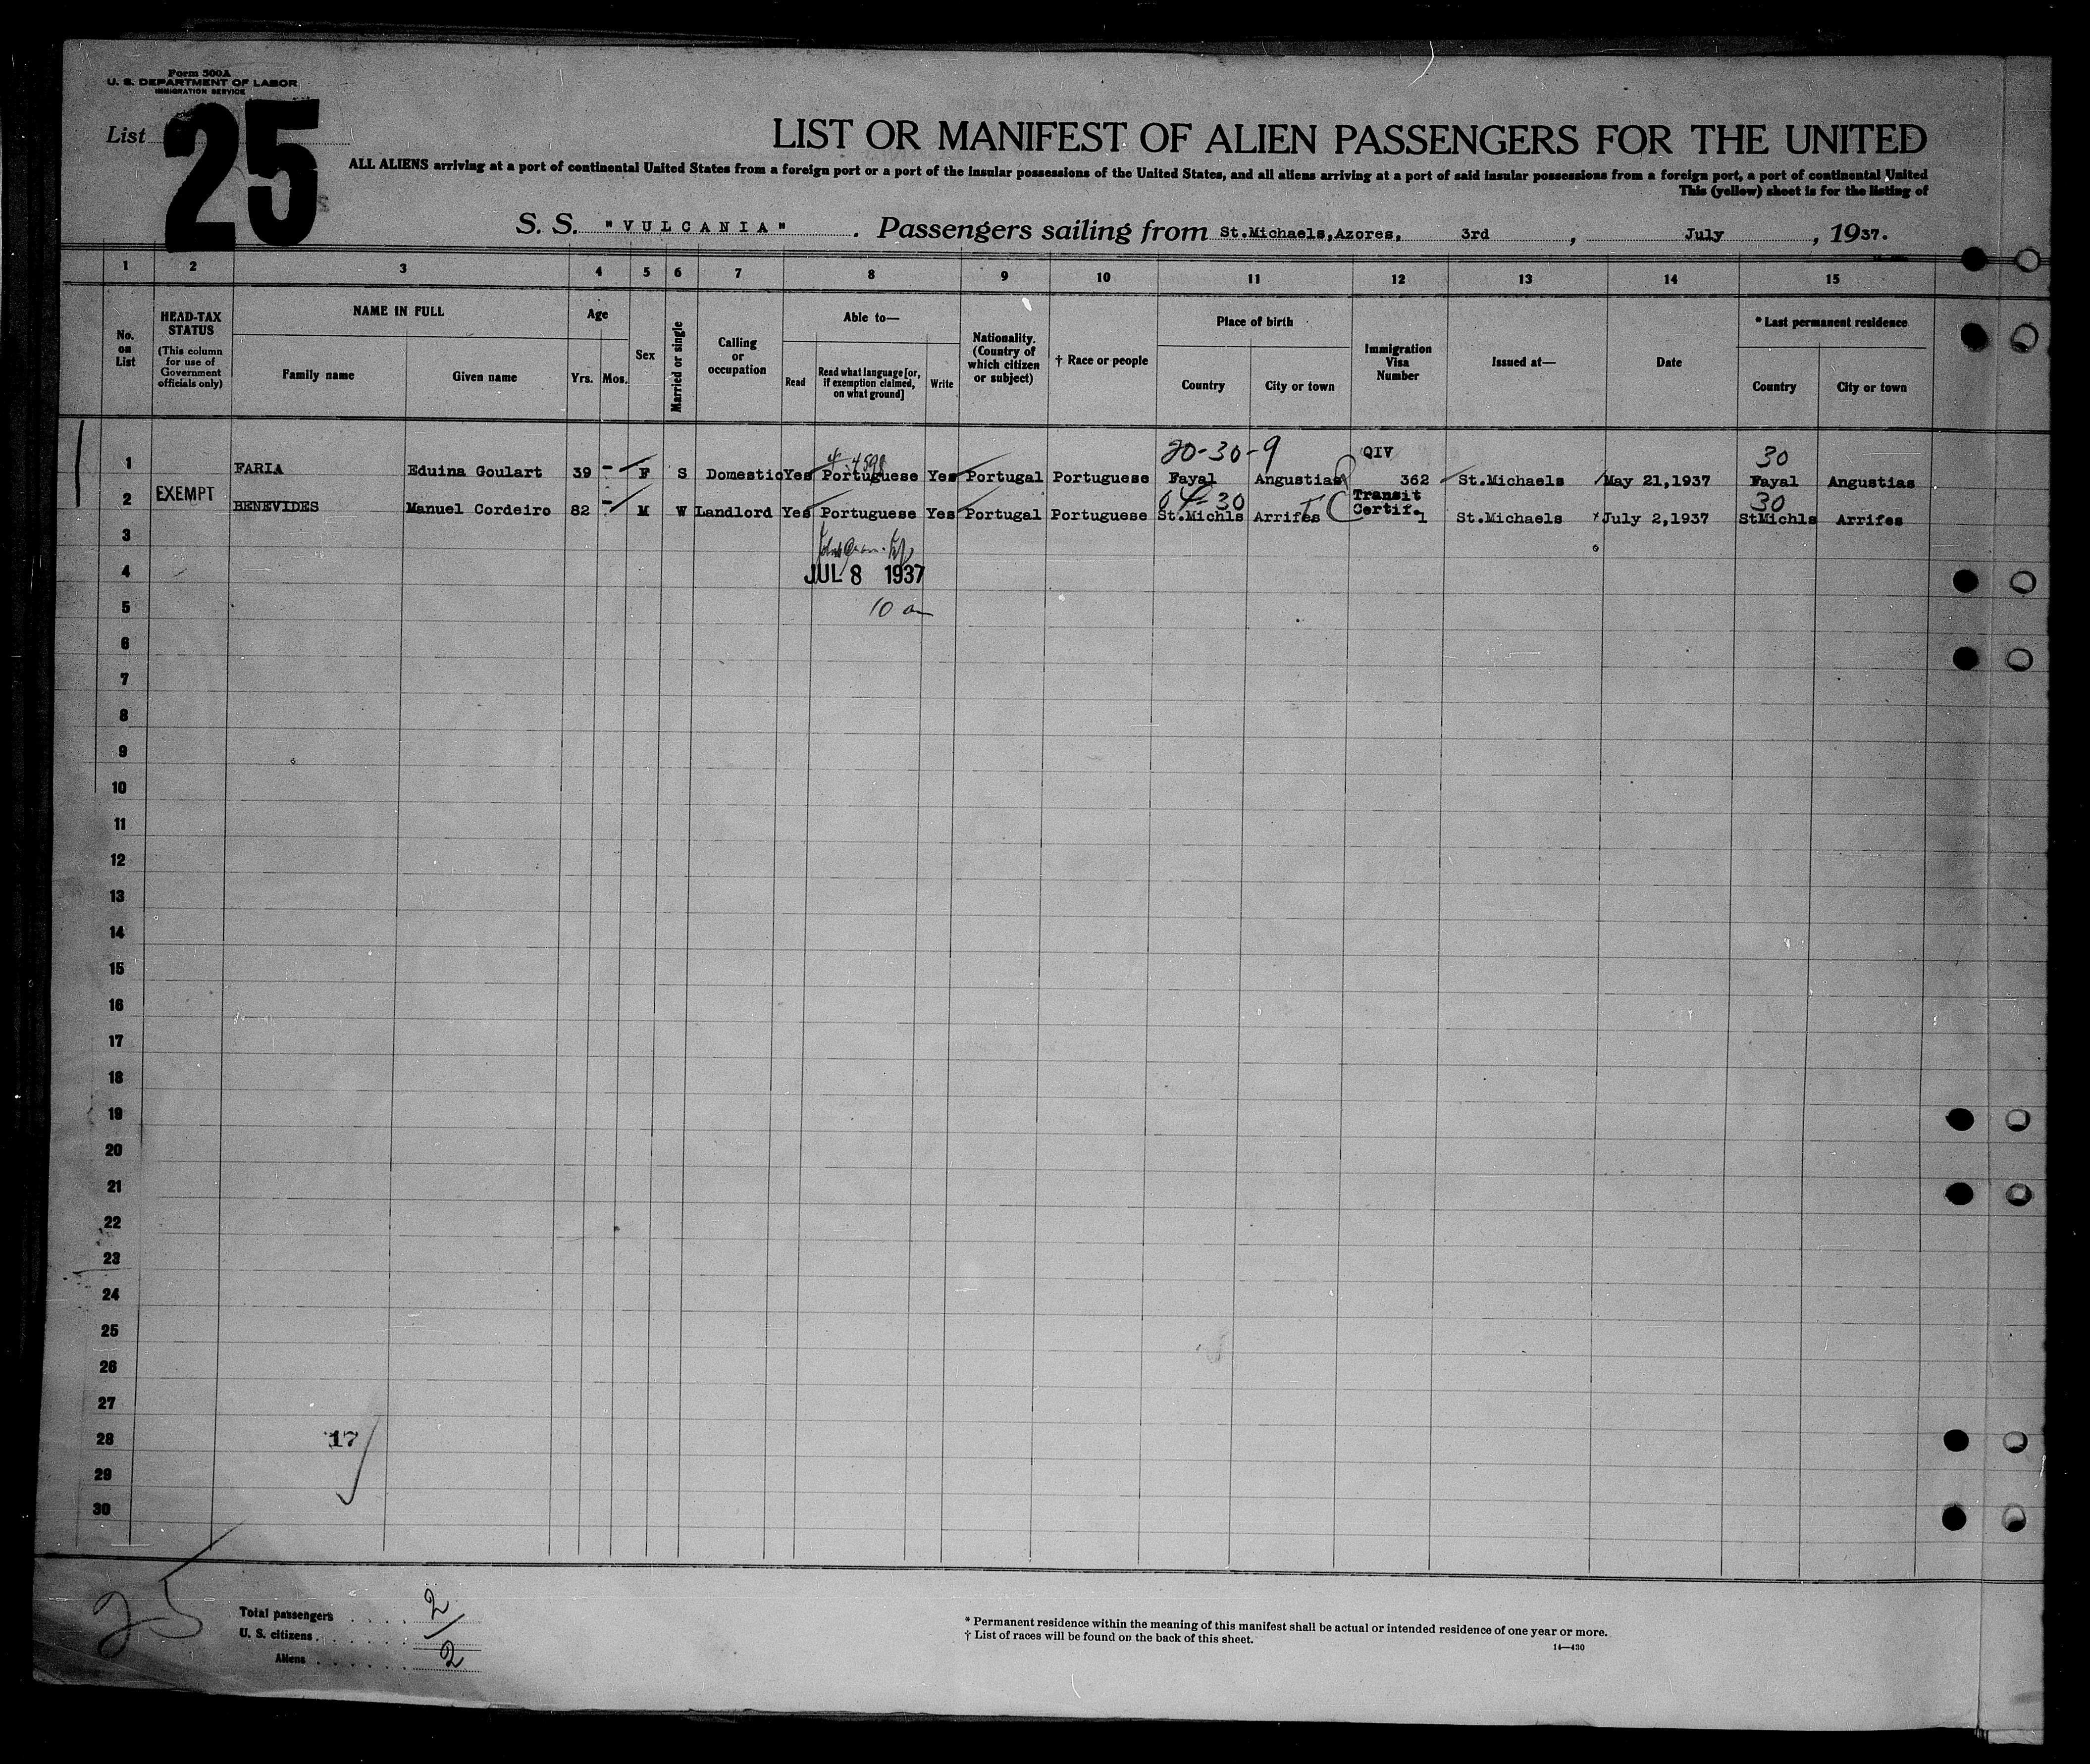 Form 500A
U. S. DEPARTMENT OF LABOR
IMMIGRATION SERVICE
List 25
LIST OR MANIFEST OF ALIEN PASSENGERS FOR THE UNITED
ALL ALIENS arriving at a port of continental United States from a foreign port or a port of the insular possessions of the United States, and all aliens arriving at a port of said insular possessions from a foreign port, a port of continental United
This (yellow) sheet is for the listing of
S. S. "VULCANIA". Passengers sailing from St.Michaels,Azores, 3rd, July, 1937.
1 2 3 4 5 6 7 8 9 10 11 12 13 14 15
No. on List
HEAD-TAX STATUS (This column for use of Government officials only)
NAME IN FULL
Family name Given name
Age
Yrs. Mos.
Sex
Married or single
Calling or occupation
Able to—
Read Read what language [or, if exemption claimed, on what ground] Write
Nationality. (Country of which citizen or subject)
† Race or people
Place of birth
Country City or town
Immigration Visa Number
Issued at—
Date
* Last permanent residence
Country City or town
20-30-9 QIV 30
1 FARIA Eduina Goulart 39 - F S Domestic Yes Portuguese Yes Portugal Portuguese Fayal Angustias 362 St.Michaels May 21,1937 Fayal Angustias
04-30 TC 30
2 EXEMPT BENEVIDES Manuel Cordeiro 82 - M W Landlord Yes Portuguese Yes Portugal Portuguese St.Michls Arrifes Transit Certif. 1 St.Michaels July 2,1937 StMichls Arrifes
3
4 JUL 8 1937
5 10 am
6
7
8
9
10
11
12
13
14
15
16
17
18
19
20
21
22
23
24
25
26
27
28 17
29
30
25
Total passengers 2
U. S. citizens
Aliens 2
* Permanent residence within the meaning of this manifest shall be actual or intended residence of one year or more.
† List of races will be found on the back of this sheet.
14—430